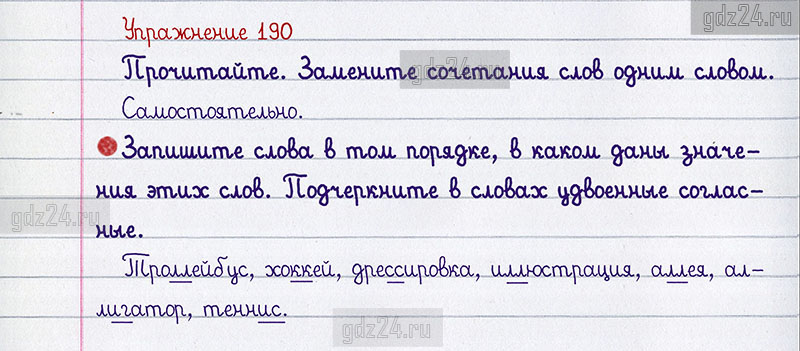 gdz24.ru
Упражнение 190
Прочитайте. Замените сочетания слов одним словом.
gdz24.ru
Самостоятельно.
Запишите слова в том порядке, в каком даны значе-
ния этих слов. Подчеркните в словах удвоенные соглас-
gdz24.ru
ные.
Троллейбус, хоккей, дрессировка, иллюстрация, аллея, ал-
лигатор, теннис.
gdz24.ru